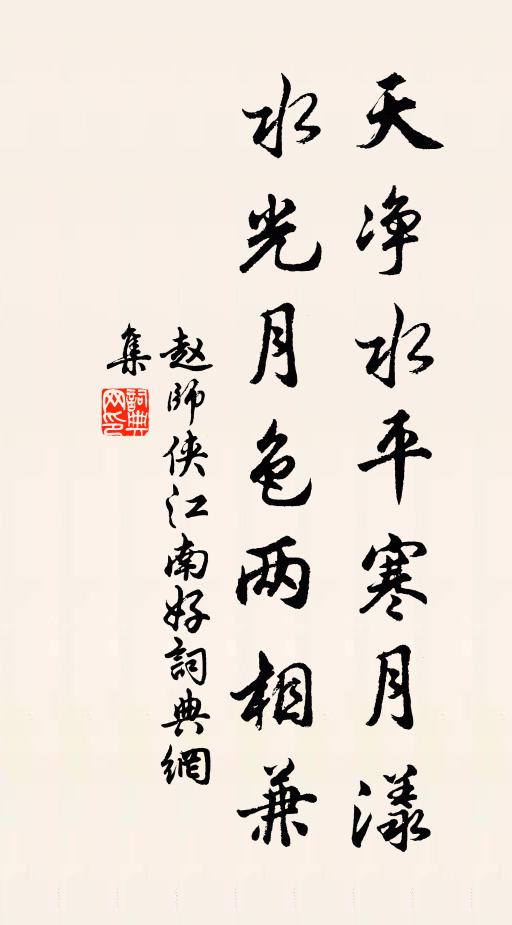 天净水平寒月漾
水光月色两相兼
赵師侠江南好詞典網
集
詞典
网印